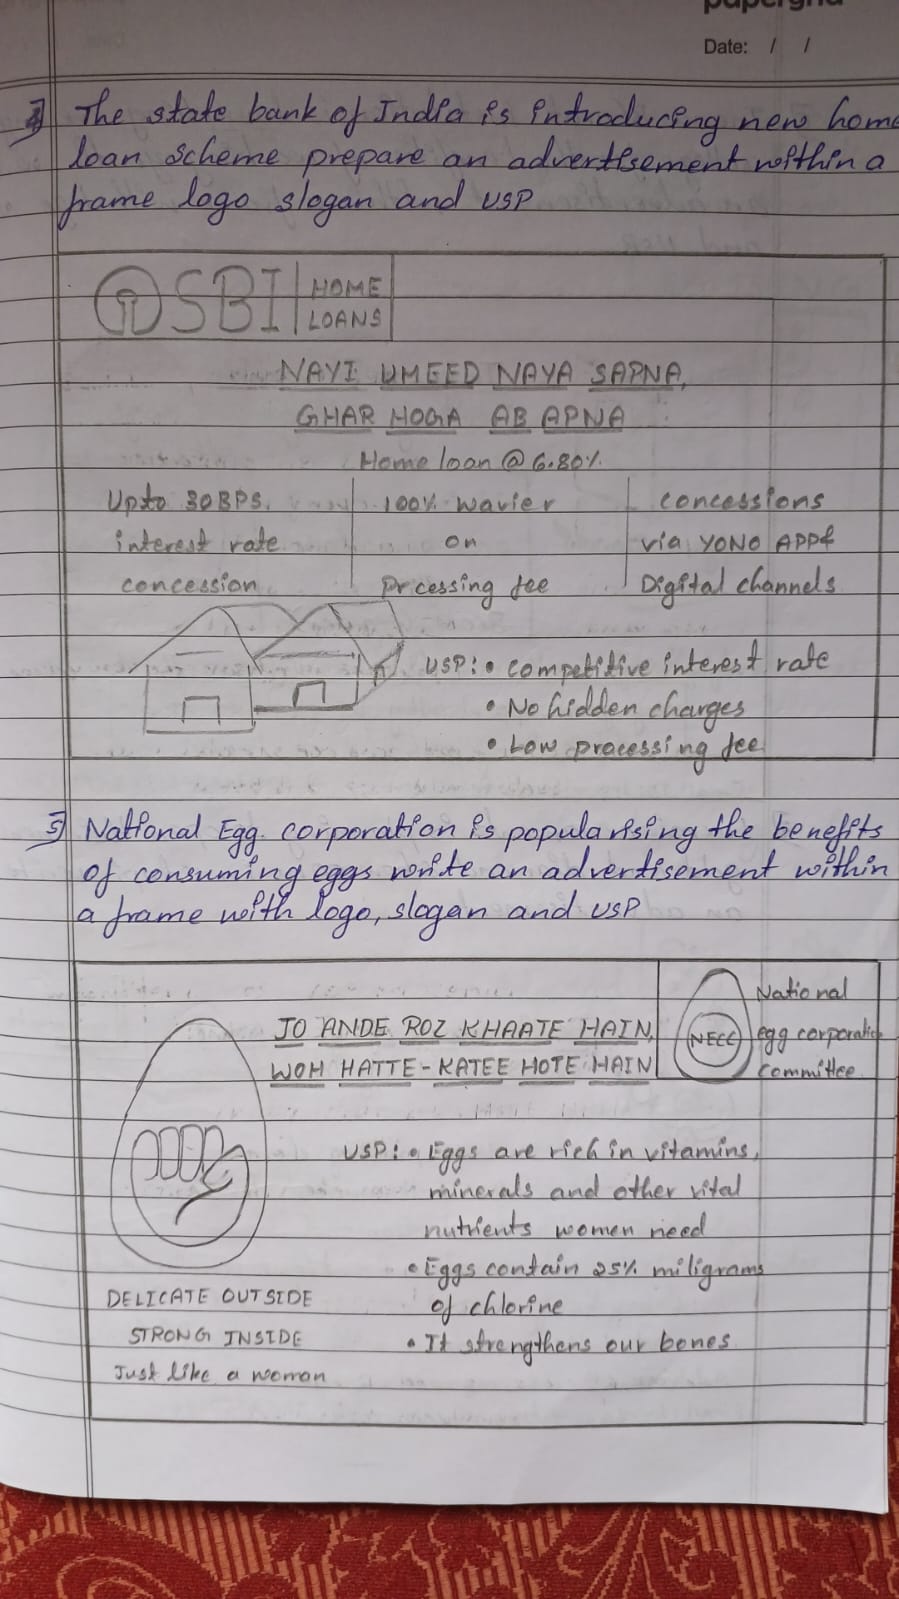 papergrid
Date: / /
The state bank of India is introducing new home
loan scheme prepare an advertisement within a
frame logo slogan and USP
SBI HOME
LOANS
NAYI UMEED NAYA SAPNA,
GHAR HOGA AB APNA
Home loan @ 6.80%
Upto 30BPS.
interest rate
concession
100% wavier
on
Prcessing fee
concessions
via YONO APP&
Digital channels
USP: • competitive interest rate
• No hidden charges
• Low processing fee
5) National Egg. corporation is popularising the benefits
of consuming eggs write an advertisement within
a frame with logo, slogan and USP
JO ANDE ROZ KHAATE HAIN,
WOH HATTE-KATEE HOTE HAIN
NECC
National
egg corporation
committee
USP: • Eggs are rich in vitamins,
minerals and other vital
nutrients women need
• Eggs contain 25% miligrams
of chlorine
• It strengthens our bones
DELICATE OUTSIDE
STRONG INSIDE
Just like a woman